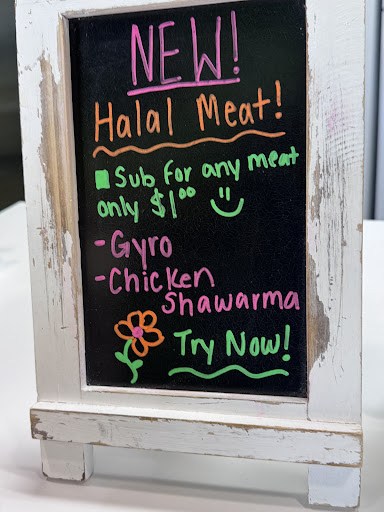 NEW!
Halal Meat!
■ Sub for any meat
only $1⁰⁰
- Gyro
- Chicken
Shawarma
Try Now!